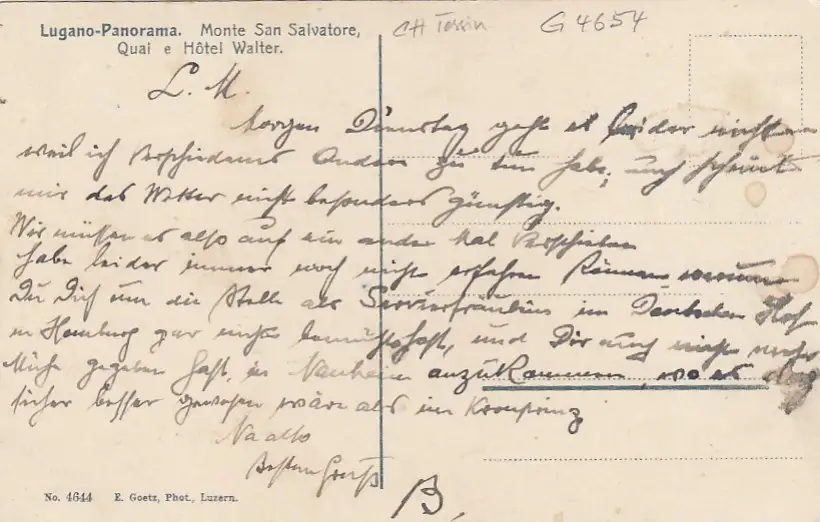 Lugano-Panorama. Monte San Salvatore,
Quai e Hôtel Walter.
CH Tessin
G 4654
L. M.
Morgen Dienstag geht es leider nicht
weil ich verschiedenes Andere zu tun habe, auch scheint
mir das Wetter nicht besonders günstig.
Wir müssen es also auf ein ander Mal verschieben
habe leider immer noch nicht erfahren können warum
Du Dich um die Stelle als Servierfräulein im Deutschen Hof
in Homburg gar nicht bemüht hast, und Dir auch nicht mehr
Mühe gegeben hast, in Nauheim anzukommen, wo es doch
sicher besser gewesen wäre als im Kronprinz
Na also
Besten Gruß
B.
No. 4644 E. Goetz, Phot., Luzern.